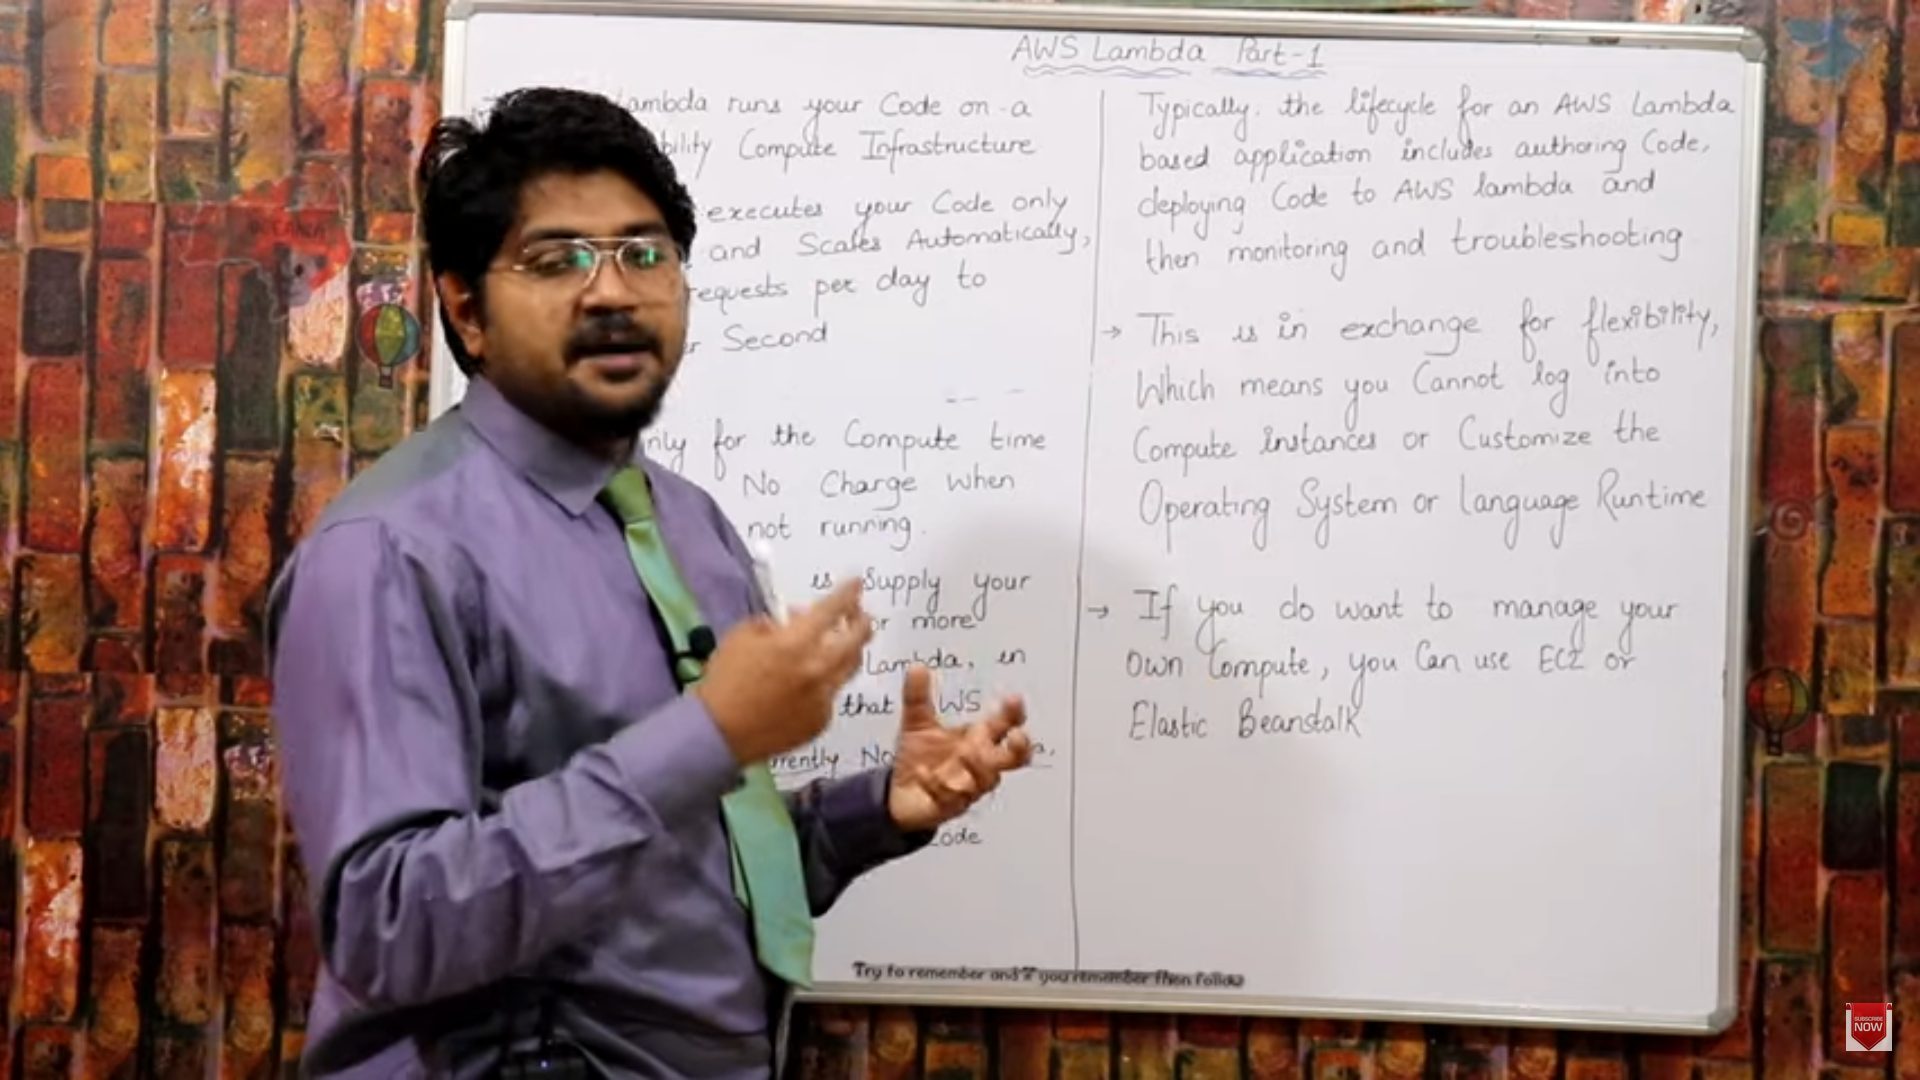 AWS Lambda Part-1
Lambda runs your Code on a
Compute Infrastructure
executes your Code only
and Scales Automatically,
requests per day to
Second
for the Compute time
No Charge when
not running.
is Supply your
or more
Lambda, in
that AWS
No
Code
Typically, the lifecycle for an AWS Lambda
based application includes authoring Code,
deploying Code to AWS lambda and
then monitoring and troubleshooting
→ This is in exchange for flexibility,
Which means you Cannot log into
Compute instances or Customize the
Operating System or language Runtime
→ If you do want to manage your
own Compute, you Can use EC2 or
Elastic Beanstalk
Try to remember and if you remember then follow
SUBSCRIBE
NOW